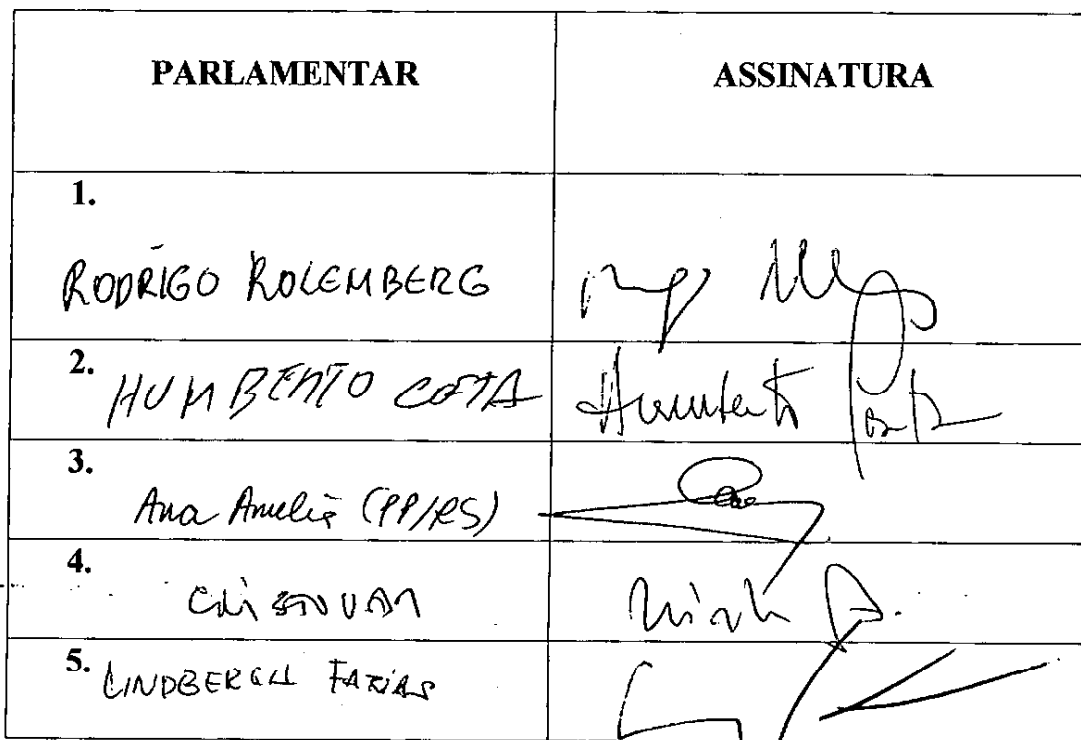 PARLAMENTAR ASSINATURA
1.
RODRIGO ROLEMBERG
2. HUMBERTO COSTA Humberto Costa
3.
Ana Amelia (PP/RS)
4.
CRISTOVAM
5. LINDBERGH FARIAS